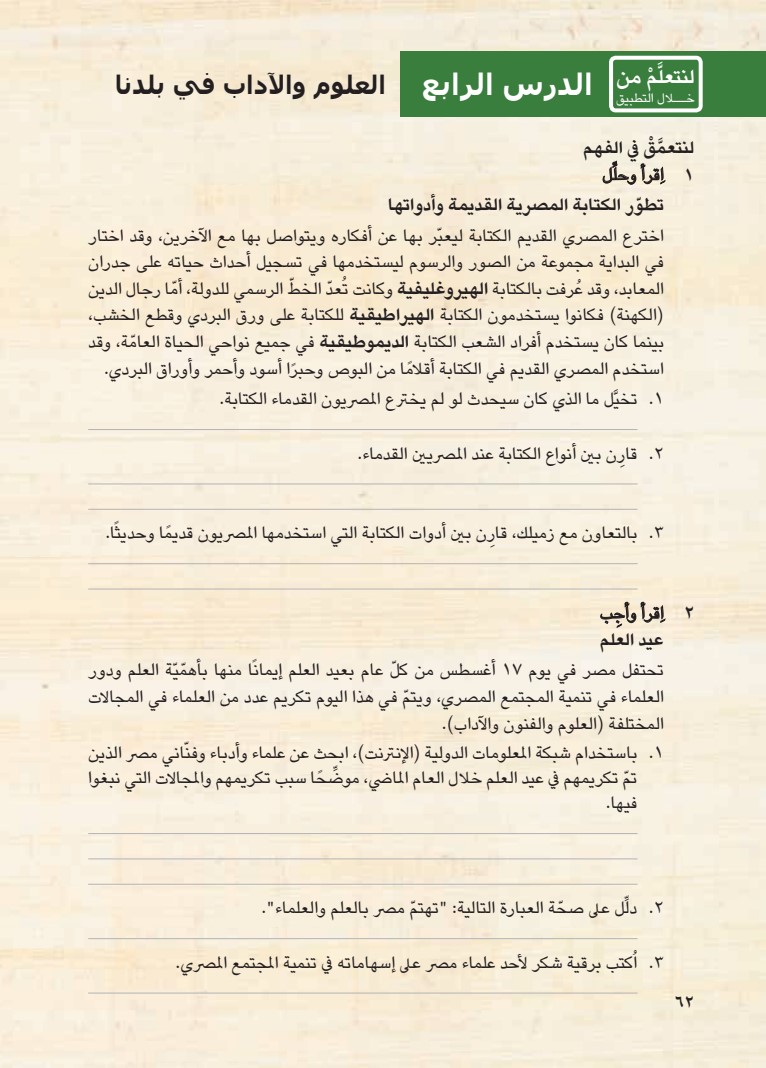 لنتعلَّمْ من
خـــلال التطبيق
الدرس الرابع
العلوم والآداب في بلدنا
لنتعمَّقْ في الفهم
١ اِقرأ وحلِّل
تطوّر الكتابة المصرية القديمة وأدواتها
اخترع المصري القديم الكتابة ليعبّر بها عن أفكاره ويتواصل بها مع الآخرين، وقد اختار
في البداية مجموعة من الصور والرسوم ليستخدمها في تسجيل أحداث حياته على جدران
المعابد، وقد عُرفت بالكتابة الهيروغليفية وكانت تُعدّ الخطّ الرسمي للدولة، أمّا رجال الدين
(الكهنة) فكانوا يستخدمون الكتابة الهيراطيقية للكتابة على ورق البردي وقطع الخشب،
بينما كان يستخدم أفراد الشعب الكتابة الديموطيقية في جميع نواحي الحياة العامّة، وقد
استخدم المصري القديم في الكتابة أقلامًا من البوص وحبرًا أسود وأحمر وأوراق البردي.
١. تخيَّل ما الذي كان سيحدث لو لم يخترع المصريون القدماء الكتابة.
٢. قارِن بين أنواع الكتابة عند المصريين القدماء.
٣. بالتعاون مع زميلك، قارِن بين أدوات الكتابة التي استخدمها المصريون قديمًا وحديثًا.
٢ اِقرأ وأجِب
عيد العلم
تحتفل مصر في يوم ١٧ أغسطس من كلّ عام بعيد العلم إيمانًا منها بأهمّيّة العلم ودور
العلماء في تنمية المجتمع المصري، ويتمّ في هذا اليوم تكريم عدد من العلماء في المجالات
المختلفة (العلوم والفنون والآداب).
١. باستخدام شبكة المعلومات الدولية (الإنترنت)، ابحث عن علماء وأدباء وفنّاني مصر الذين
تمّ تكريمهم في عيد العلم خلال العام الماضي، موضِّحًا سبب تكريمهم والمجالات التي نبغوا
فيها.
٢. دلِّل على صحّة العبارة التالية: "تهتمّ مصر بالعلم والعلماء".
٣. أُكتب برقية شكر لأحد علماء مصر على إسهاماته في تنمية المجتمع المصري.
٦٢